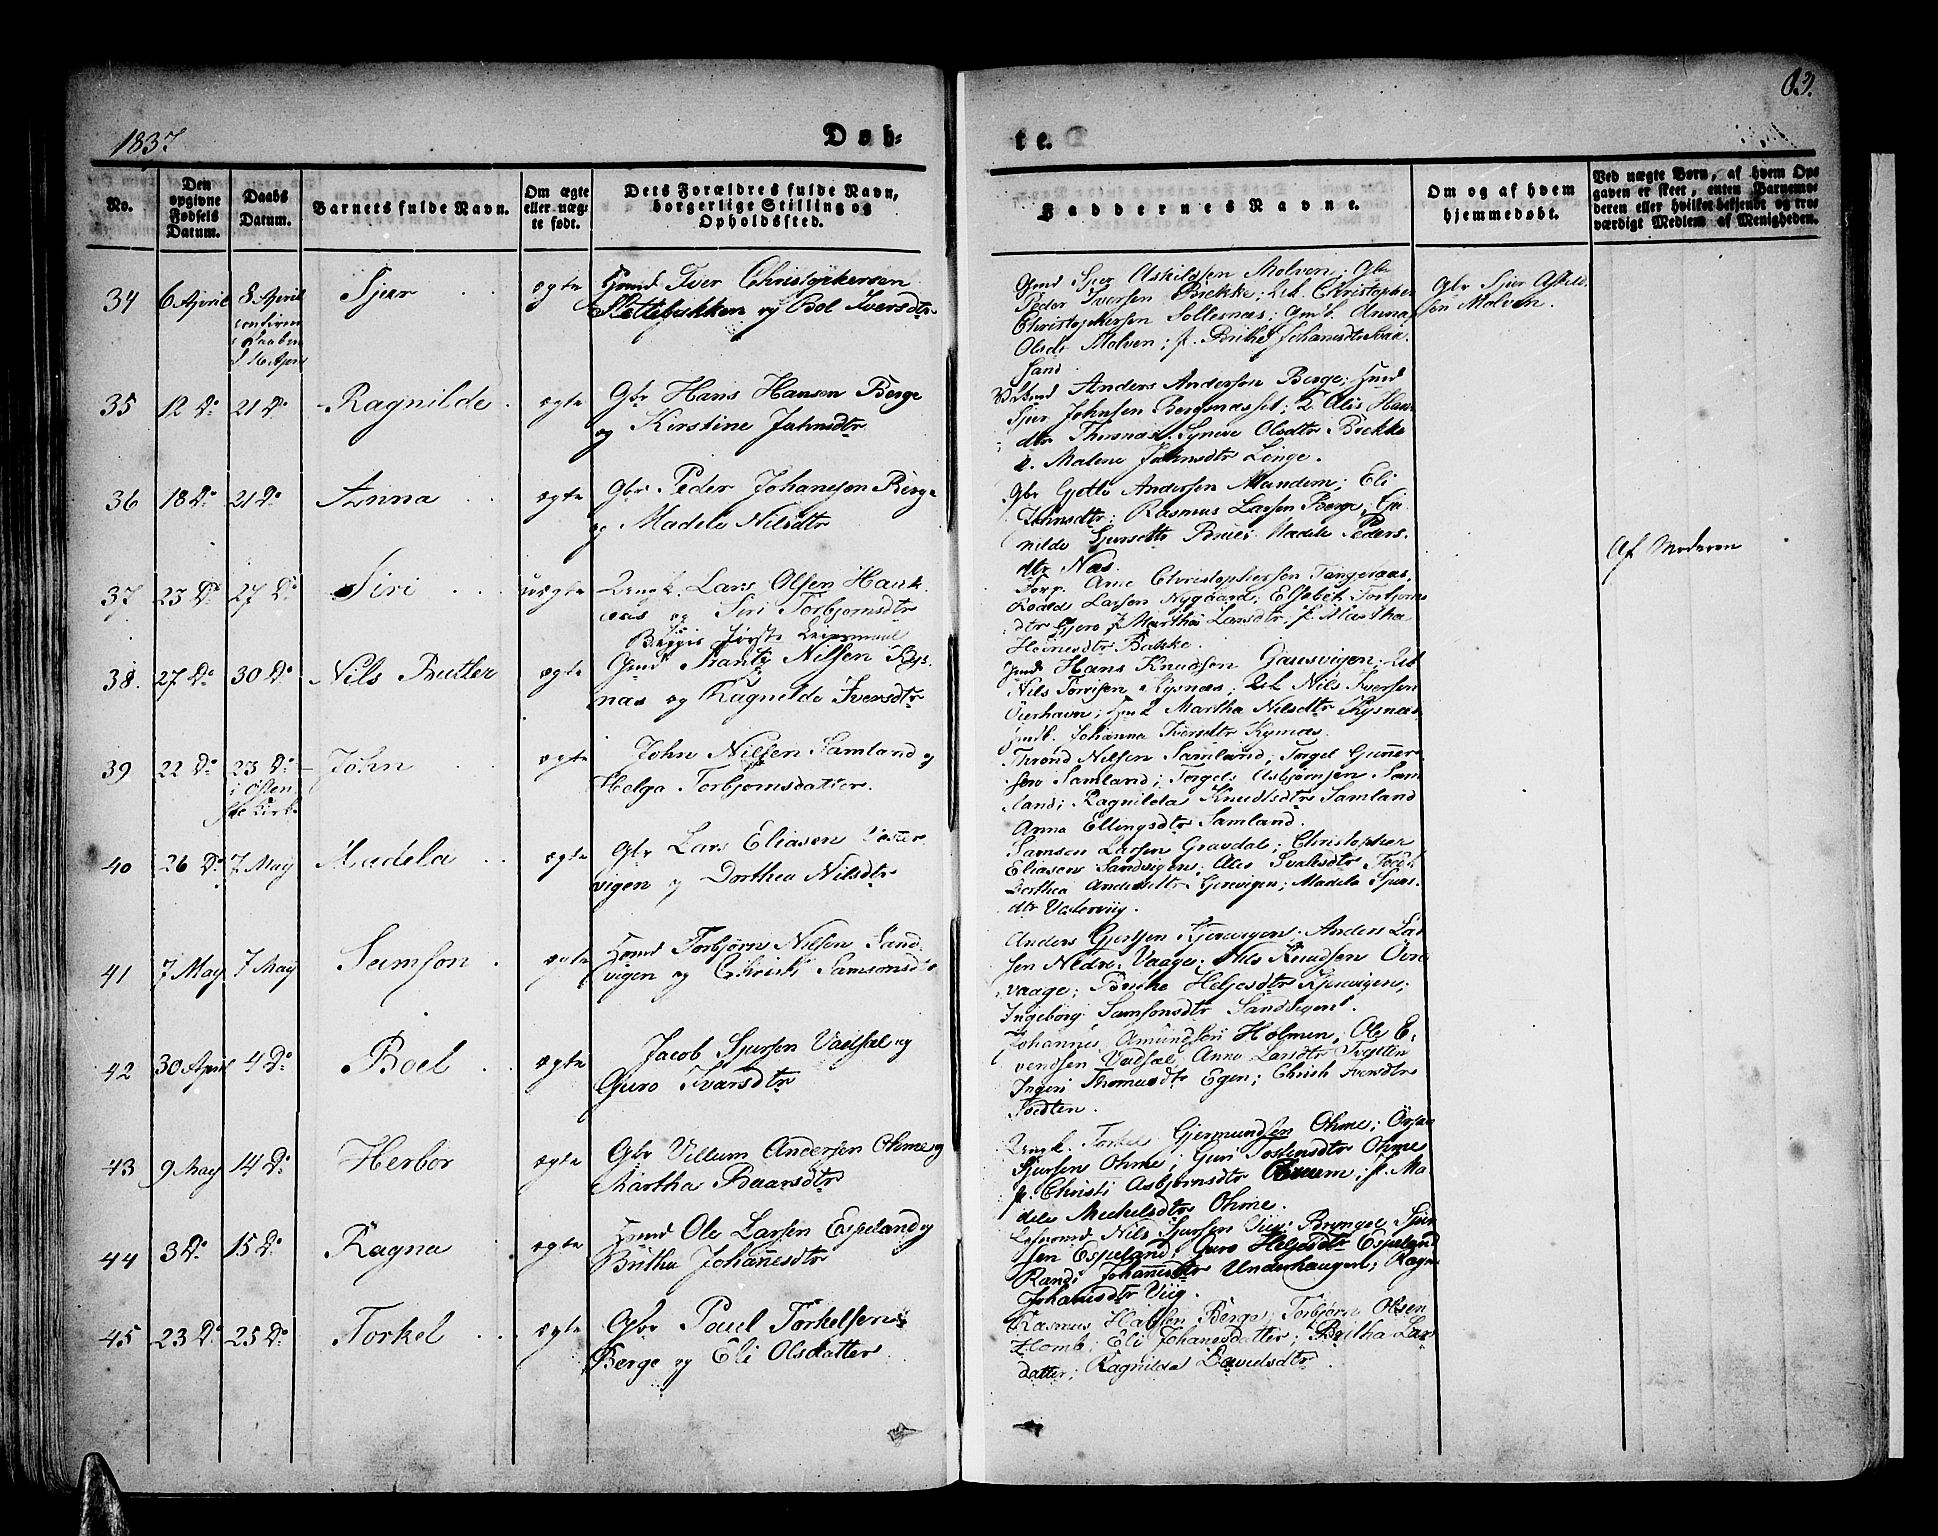 63.
1837
Døb-
te.
No.
Den opgivne Fødsels Datum.
Daabs Datum.
Barnets fulde Navn.
Om ægte eller uægte født.
Dets Forældres fulde Navn, borgerlige Stilling og Opholdssted.
Faddernes Navne.
Om og af hvem hjemmedøbt.
Ved uægte Børn, af hvem Opgaven er skeet, enten Barnemoderen eller hvilket bekjendt og troværdigt Medlem af Menigheden.
34 6 April 8 April
confirm
i Kirken
d 16 April
Sjur
ægte
Hmd Iver Christophersen
Slettebakken og Bol Iversdtr
Gmd Sjur Askildsen Molven; Gbr
Peder Iversen Bække; Christopher
Christophersen Solesnæs; Anna
Olsdr Molven; p. Brithe Johanesdtr
sand
Gbr Sjur Askild-
sen Molven.
35 12 Do 21 Do
Ragnilde
ægte
Gbr Hans Hansen Berge
og Kirstine Johnsdtr
Anders Andersen Berge; Hmd
Sjur Johnsen Bergsnæsset; Alis Han-
dtr Thorsnæs; Synneve Olsdtr Bække
p. Malene Johnsdtr Linge.
36 18 Do 21 Do
Anna
ægte
Gbr Peder Johanesen Berge
og Madele Nilsdtr
Gbr Gjetle Andersen Mundem; Eli
Johnsdtr; Rasmus Larsen Berge;
nilde Sjursdtr Madele Peders-
dtr Næs.
37 23 Do 27 Do
Siri
uægte
Lars Olsen Hauk-
aas og Siri Torbjørnsdtr
Begges første Leiermaal
Arne Christophersen Tangeraas,
Larsen Nygaard; Elsebet Torbjørns
dtr Gjero p. Martha Larsdtr, p. Martha
Heinesdtr Bakke.
Af Moderen
38. 27 Do 30 Do
Nils Butler
ægte
Gmd Frantz Nilsen Røs-
næs og Ragnilde Iversdtr
Hmd Hans Knudsen Gausvigen;
Nils Torvisen Røsnæs; Nils Iversen
Øierhavn; Martha Nilsdtr Røsnæs
Johanna Iversdtr Røsnæs
39 22 Do 23 Do
i Østen-
sø Kirke
John
ægte
John Nilsen Samland og
Helga Torbjørnsdatter.
Trond Nilsen Samland; Torgel Gunner-
sen Samland; Torgels Asbjørnsen Sam-
land; Ragnilda Knudtsdtr Samland
Anna Ellingsdtr Samland.
40 26 Do 7 May
Madela
ægte
Gbr Lars Eliasen Vaster-
vigen og Dorthea Nilsdtr
Samsen Larsen Gravdal; Christopher
Eliasen Sandvigen;
Dorthea Andersdtr Gjerevigen; Madela Sjurs-
dtr Vastervig.
41 7 May 7 May
Samson
ægte
Hmd Torbjørn Nilsen Sand-
vigen og Christi Samsonsdtr
Anders Gjertsen Kjerevigen. Anders Lar-
sen Nedre Vaage; Nils Knudsen Øvre
vaage; Brithe Heljesdtr Kjerevigen;
Ingeborg Samsonsdtr Sandvigen
42 30 April 4 Do
Boel
ægte
Jacob Sjursen Vadsel og
Guro Ivarsdtr
Johannes Amundsen Holmen; Ole E-
vendsen Vadsel; Anna Larsdtr Tveten
Ingeri Thomasdtr Egen; Christi Iversdtr
Tvedten.
43 9 May 14 Do
Herbor
ægte
Gbr Villum Andersen Ohme og
Martha Baarsdtr
Torkel Gjermundsen Ohme; Ørjan
Sjursen Ohme; Guri Tostensdtr Ohme
p. Christi Asbjørnsdtr p. Ma-
dele Mechelsdtr Ohme.
44 3 Do 15 Do
Ragna
ægte
Hmd Ole Larsen Espeland og
Britha Johanesdtr
Nils Sjursen Viig; Brynjel Sjur-
sen Espeland; Guro Heljesdtr Espeland
Randi Johannesdtr Underhaugen; Ragna
Johanesdtr Viig.
45 23 Do 25 Do
Torkel
ægte
Gbr Paul Torkelsen
Berge og Eli Olsdatter
Rasmus Halsen Berge; Torbjørn Olsen
Flomb. Eli Johanesdatter; Britha Lars-
datter; Ragnilda Davidsdtr